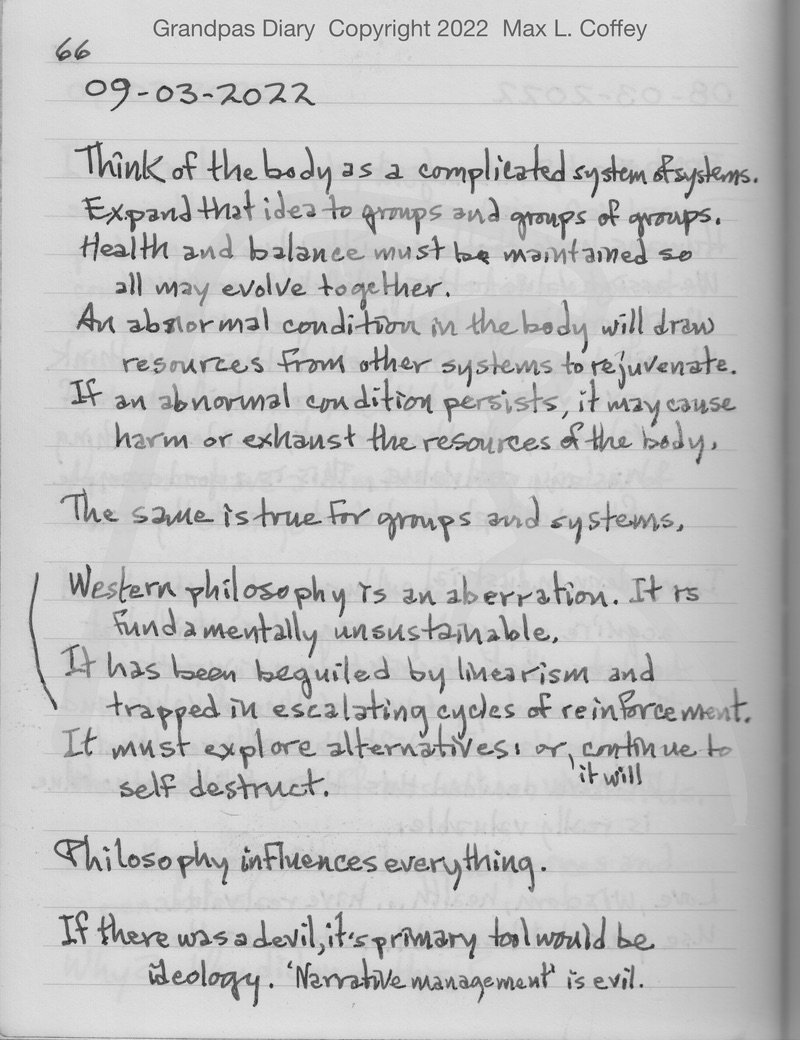 Grandpas Diary Copyright 2022 Max L. Coffey
66
09-03-2022
Think of the body as a complicated system of systems.
Expand that idea to groups and groups of groups.
Health and balance must be maintained so
all may evolve together.
An abnormal condition in the body will draw
resources from other systems to rejuvenate.
If an abnormal condition persists, it may cause
harm or exhaust the resources of the body.
The same is true for groups and systems.
Western philosophy is an aberration. It is
fundamentally unsustainable.
It has been beguiled by linearism and
trapped in escalating cycles of reinforcement.
It must explore alternatives: or, continue to
it will
self destruct.
Philosophy influences everything.
If there was a devil, it's primary tool would be
ideology. 'Narrative management' is evil.